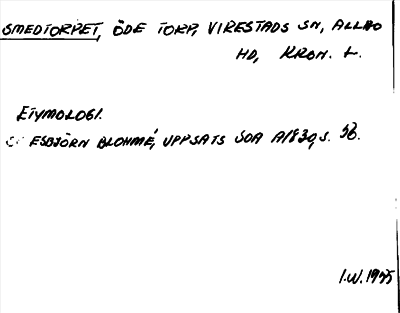 SMEDTORPET, ÖDE TORP, VIRESTADS SN, ALLBO
HD, KRON. L.
ETYMOLOGI.
SE ESBJÖRN BLOHMÉ, UPPSATS SOA A1830, S. 56.
I.W. 1975